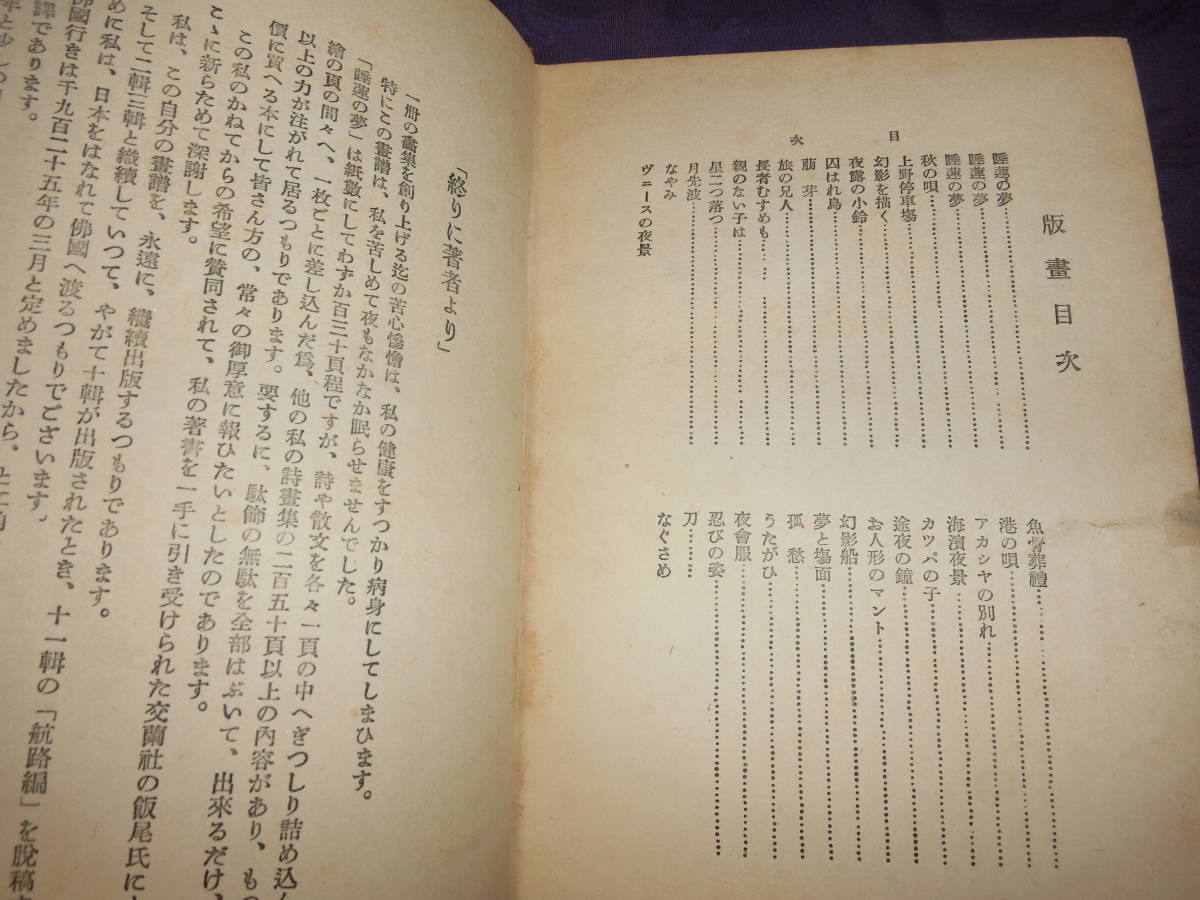 版畫目次
睡蓮の夢
睡蓮の夢
睡蓮の夢
秋の唄
上野停車場
幻影を描く
夜露の小鈴
囚はれ鳥
萠芽
旅の兄人
長者むすめも
親のない子は
星二つ落つ
月先波
なやみ
ヴニースの夜景
目次
魚骨葬禮
港の唄
アカシヤの別れ
海濱夜景
カツパの子
途夜の鐘
お人形のマント
幻影船
夢と場面
孤愁
うたがひ
夜會服
忍びの姿
刀
なぐさめ
「終りに著者より」
一册の畵集を創り上げる迄の苦心慘憺は、私の健康をすつかり病身にしてしまひます。
特にこの畫譜は、私を苦しめて夜もなかなか眠らせませんでした。
「睡蓮の夢」は紙數にしてわずか百三十頁程ですが、詩や散文を各々一頁の中へぎつしり詰め込ん
繪の頁の間々へ、一枚ごとに差し込んだ爲、他の私の詩畫集の二百五十頁以上の內容があり、もつ
以上の力が注がれて居るつもりであります。要するに、駄飾の無駄を全部はぶいて、出來るだけ、
價に買へる本にして皆さん方の、常々の御厚意に報ひたいとしたのであります。
この私のかねてからの希望に賛同されて、私の著書を一手に引き受けられた交蘭社の飯尾氏に
こゝに新らためて深謝します。
私は、この自分の畫譜を、永遠に、繼續出版するつもりであります。
そして二輯三輯と繼續していつて、やがて十輯が出版されたとき、十一輯の「航路編」を脫稿
めに私は、日本をはなれて佛國へ渡るつもりでございます。
佛國行きは千九百二十五年の三月と定めましたから、
譯であります。